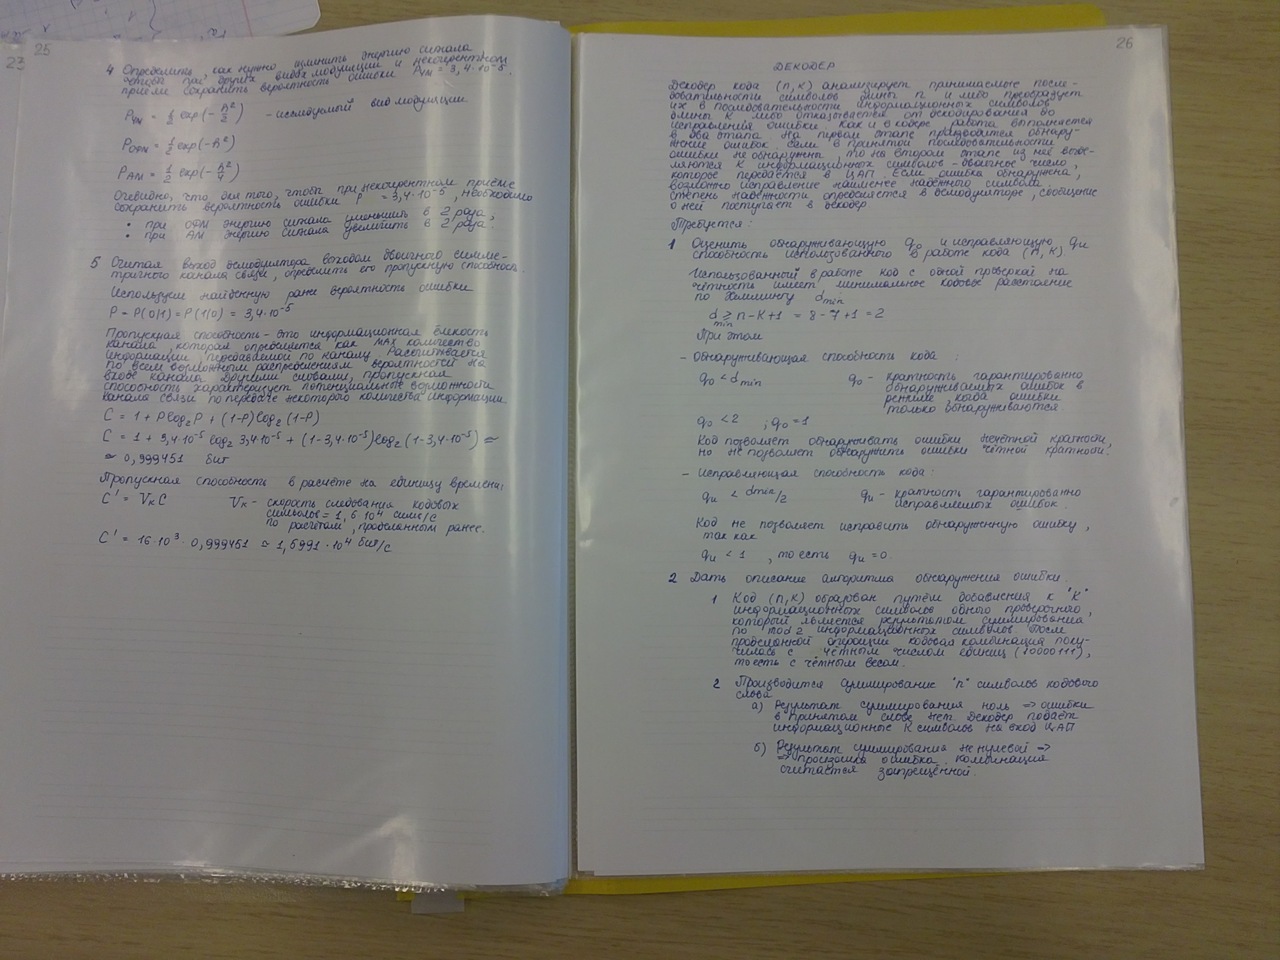 25
23
4 Определить, как нужно изменить энергию сигнала
при других видах модуляции и некогерентном
приёме сохранить вероятность ошибки Pчм = 3,4·10⁻⁵.
Pчм = ½ exp(-h²/2) - исследуемый вид модуляции
Pофм = ½ exp(-h²)
Pам = ½ exp(-h²/4)
Очевидно, что для того, чтобы при некогерентном приёме
сохранить вероятность ошибки P = 3,4·10⁻⁵, необходимо
• при ОФМ энергию сигнала уменьшить в 2 раза,
• при АМ энергию сигнала увеличить в 2 раза.
5 Считая выход демодулятора выходом двоичного симме-
тричного канала связи, определить его пропускную способност.
Используем найденную ранее вероятность ошибки
P = P(0/1) = P(1/0) = 3,4·10⁻⁵
Пропускная способность - это информационная ёмкость
канала, которая определяется как max количество
информации, передаваемой по каналу. Рассчитывается
по всем возможным распределениям вероятностей на
входе канала. Другими словами, пропускная
способность характеризует потенциальные возможности
канала связи по передаче некоторого количества информации
C = 1 + Plog₂P + (1-P)log₂(1-P)
C = 1 + 3,4·10⁻⁵ log₂ 3,4·10⁻⁵ + (1-3,4·10⁻⁵)log₂(1-3,4·10⁻⁵) ≈
≈ 0,999451 бит
Пропускная способность в расчёте на единицу времени:
C' = VкC Vк - скорость следования кодовых
символов = 1,6·10⁴ симв/с
по расчётам, проделанным ранее.
C' = 16·10³·0,999451 ≈ 1,5991·10⁴ бит/с
26
ДЕКОДЕР
Декодер кода (n,k) анализирует принимаемые после-
довательности символов длины n и либо преобразует
их в последовательности информационных символов
длины k либо отказывается от декодирования до
исправления ошибки. Как и в кодере работа выполняется
в два этапа. На первом этапе производится обнару-
жение ошибок. Если в принятой последовательности
ошибки не обнаружены то на втором этапе из неё выде-
ляются k информационных символов - двоичное число,
которое передаётся в ЦАП. Если ошибка обнаружена,
возможно исправление наименее надёжного символа.
Степень надёжности определяется в демодуляторе, сообщение
о ней поступает в декодер
Требуется:
1 Оценить обнаруживающую qо и исправляющую qи
способность использованного в работе кода (n,k).
Использованный в работе код с одной проверкой на
чётность имеет минимальное кодовое расстояние
по Хэммингу dmin
dmin ≥ n-k+1 = 8-7+1 = 2
При этом
- Обнаруживающая способность кода :
qо < dmin qо - кратность гарантированно
обнаруживаемых ошибок в
режиме, когда ошибки
только обнаруживаются.
qо < 2 ; qо = 1
Код позволяет обнаруживать ошибки нечётной кратности,
но не позволяет обнаружить ошибки чётной кратности.
- Исправляющая способность кода:
qи < dmin/2 qи - кратность гарантированно
исправляемых ошибок.
Код не позволяет исправить обнаруженную ошибку,
так как
qи < 1 , то есть qи = 0.
2 Дать описание алгоритма обнаружения ошибки.
1 Код (n,k) образован путём добавления к "k"
информационных символов одного проверочного,
который является результатом суммирования
по mod 2 информационных символов. После
проделанной операции кодовая комбинация полу-
чилась с чётным числом единиц (10000111),
то есть с чётным весом.
2 Производится суммирование "n" символов кодового
слова
а) Результат суммирования ноль => ошибки
в принятом слове нет. Декодер подаёт
информационные k символов на вход ЦАП
б) Результат суммирования не нулевой =>
=> произошла ошибка. Комбинация
считается запрещённой.